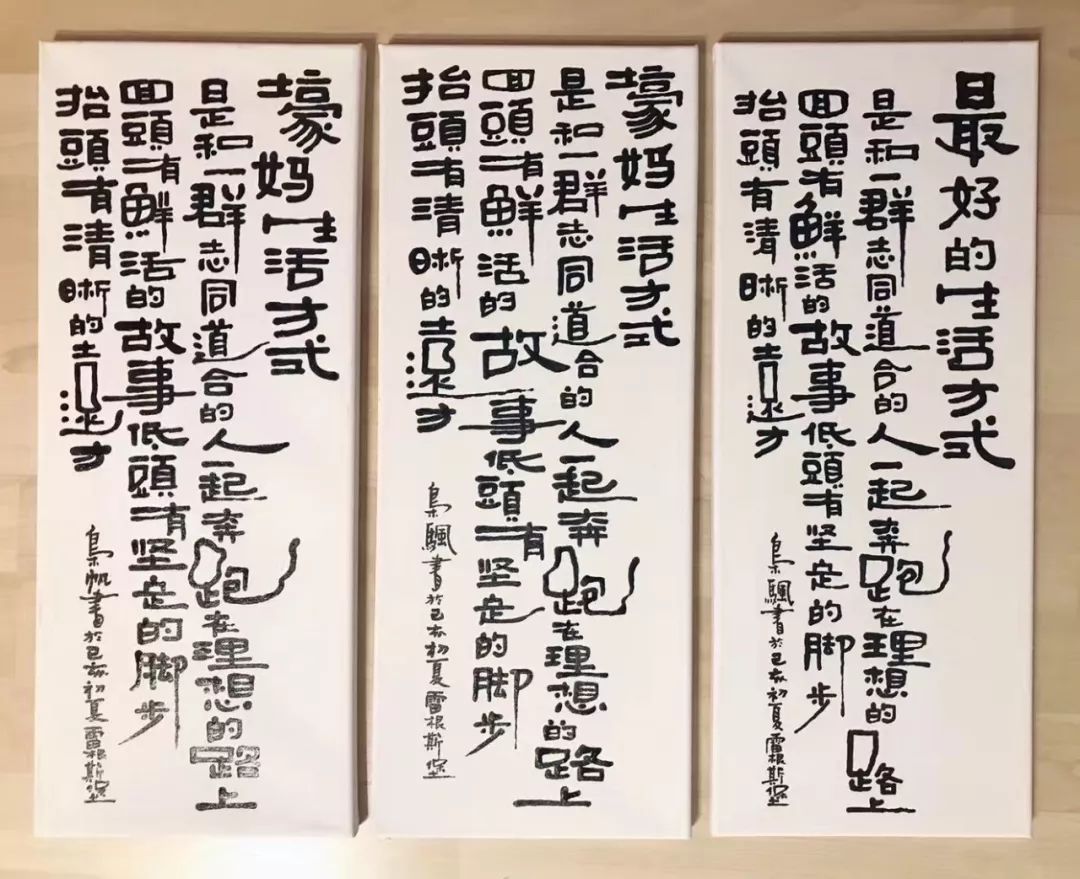 壕妈生活方式
是和一群志同道合的人一起奔跑在理想的路上
回頭有鮮活的故事低頭有坚定的脚步
抬頭有清晰的遠方
枭帆書於己亥初夏雷根斯堡
壕妈生活方式
是和一群志同道合的人一起奔跑在理想的路上
回頭有鮮活的故事低頭有坚定的脚步
抬頭有清晰的遠方
枭颿書於己亥初夏雷根斯堡
最好的生活方式
是和一群志同道合的人一起奔跑在理想的路上
回頭有鮮活的故事低頭有坚定的脚步
抬頭有清晰的遠方
枭颿書於己亥初夏雷根斯堡